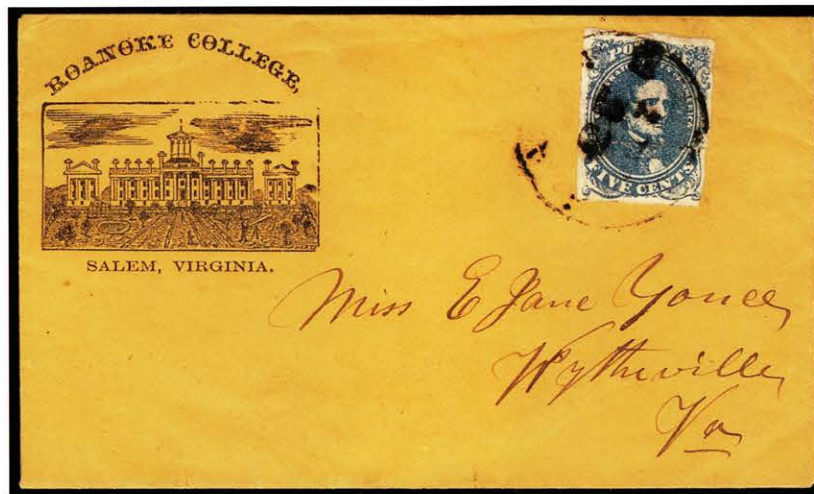 ROANOKE COLLEGE,
SALEM, VIRGINIA.
FIVE CENTS
Miss E Jane Yonce
Wytheville
Va